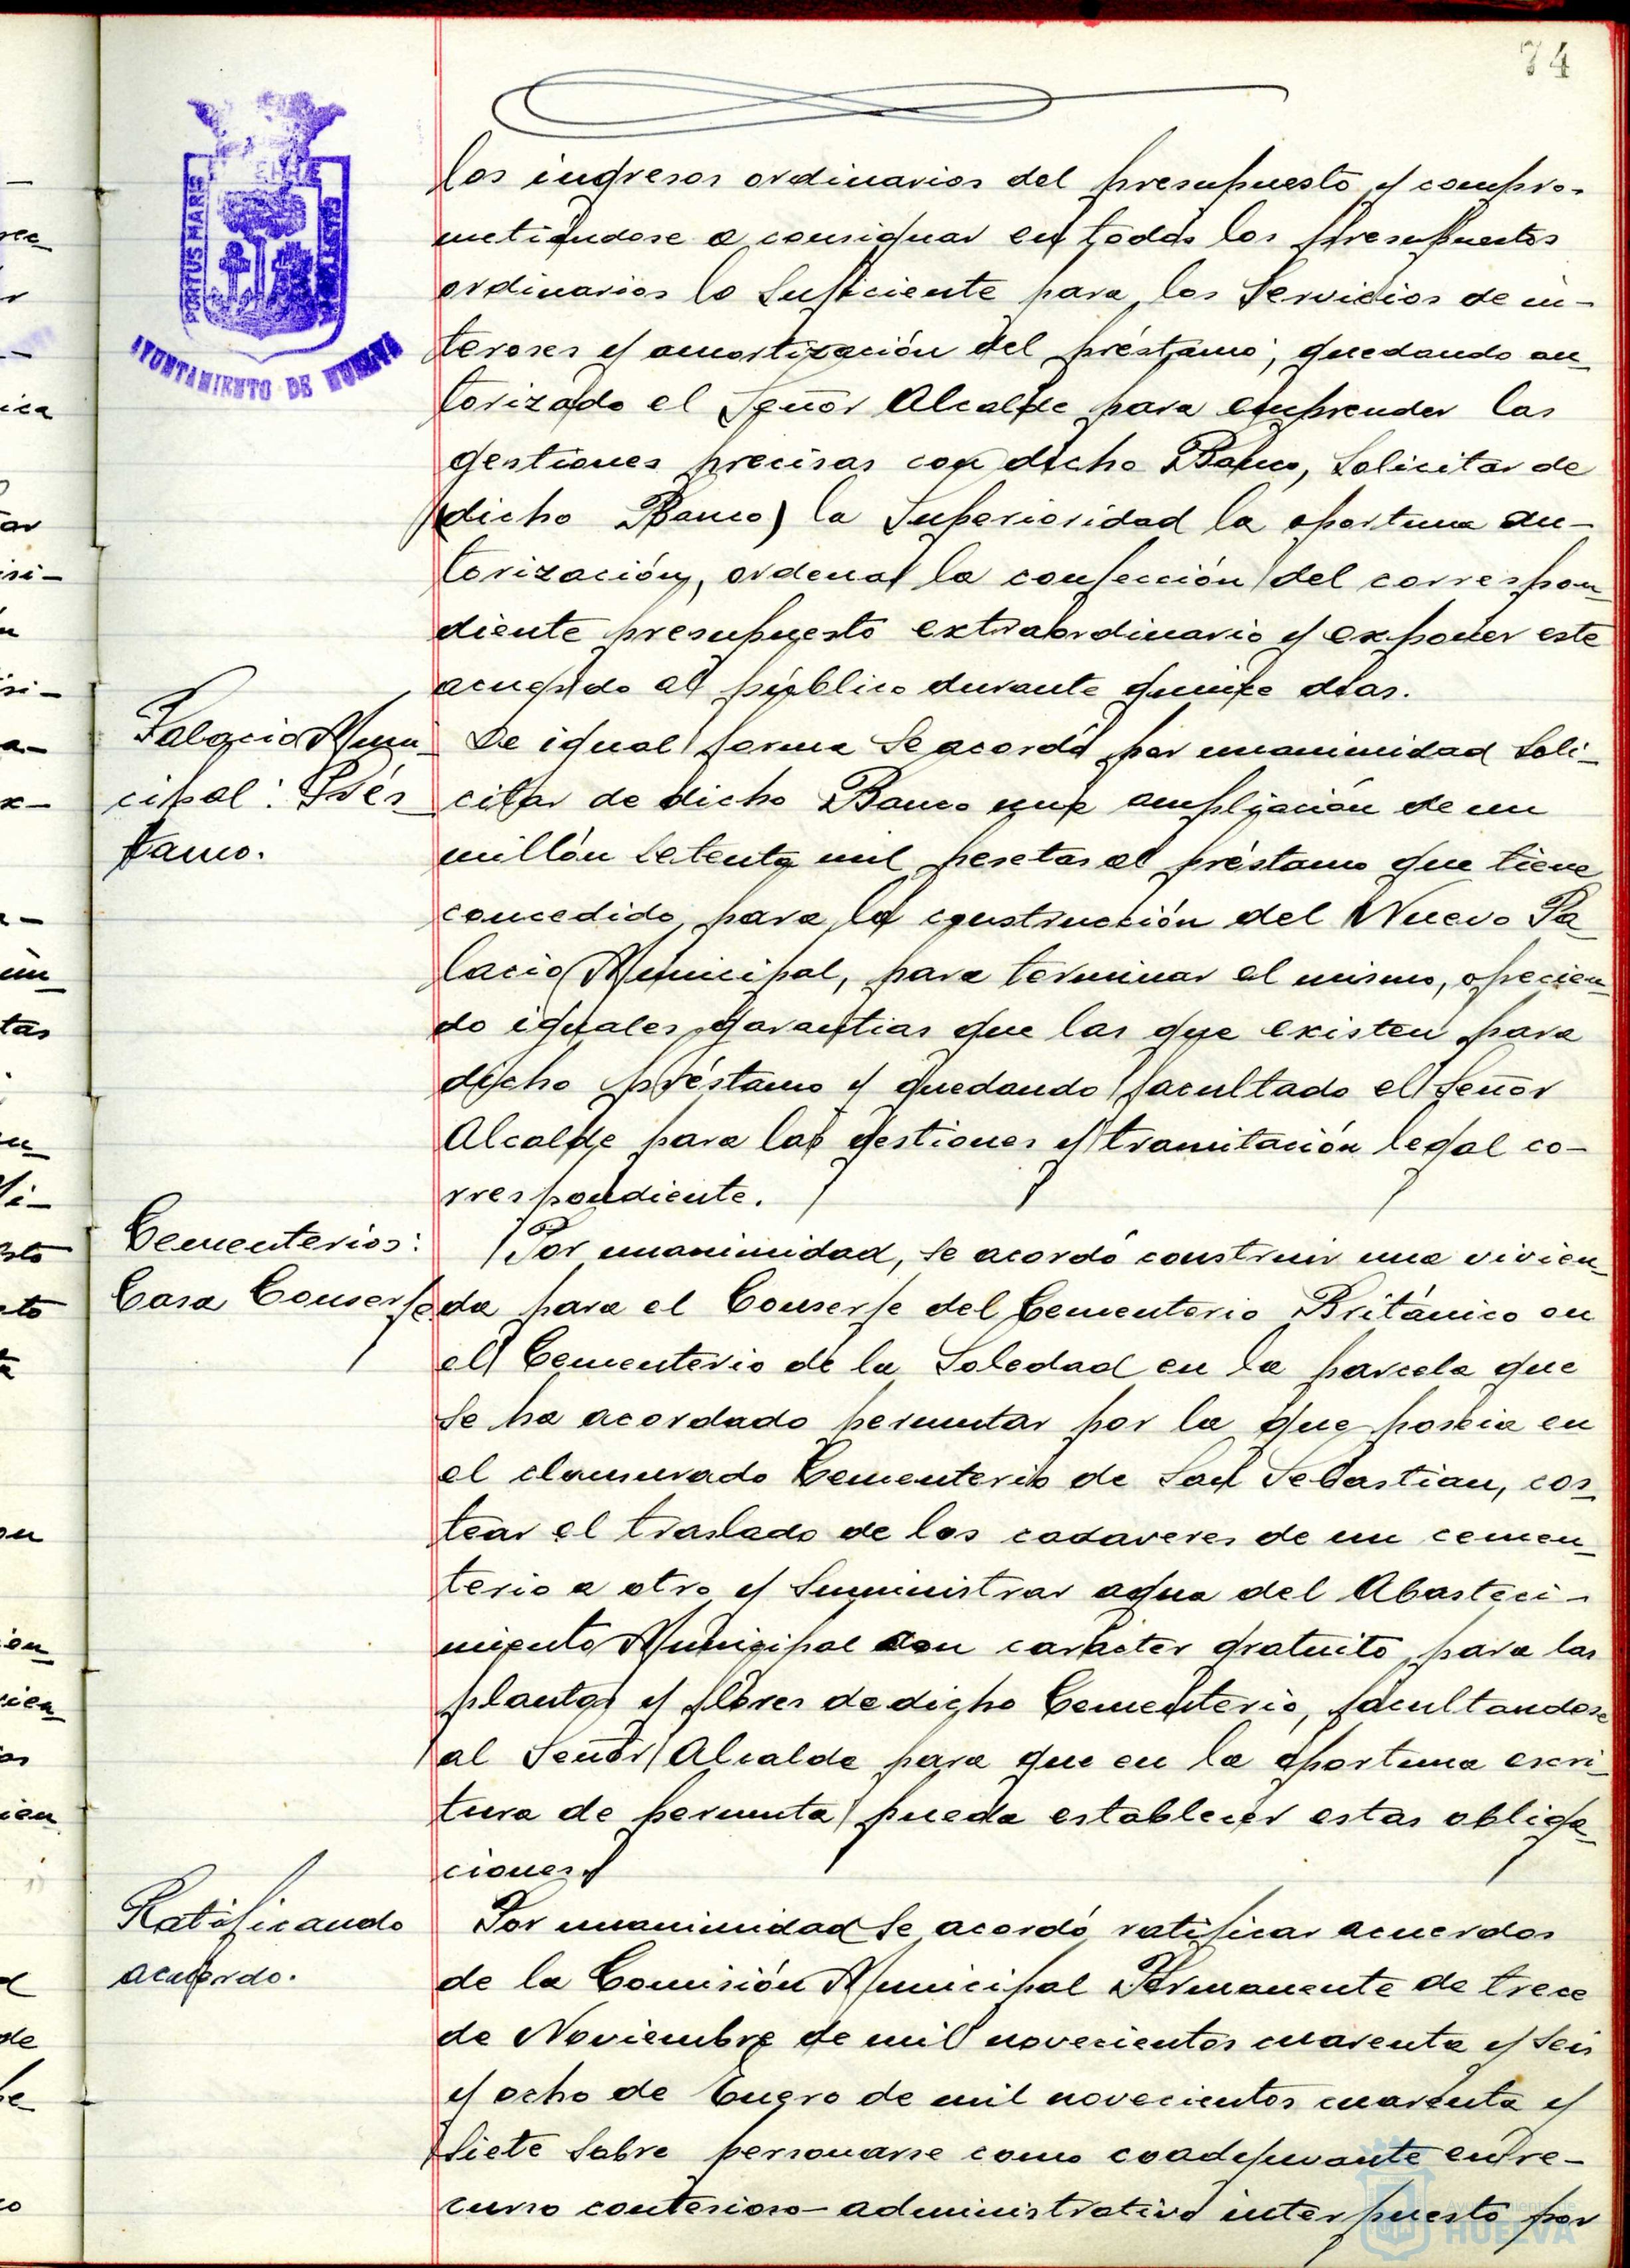 74
PORTUS MARIS
AYUNTAMIENTO DE HUELVA
los ingresos ordinarios del presupuesto y compro-
metiéndose a consignar en todos los presupuestos
ordinarios lo suficiente para los Servicios de in-
tereses y amortización del préstamo; quedando au-
torizado el Señor Alcalde para emprender las
gestiones precisas con dicho Banco, Solicitar de
(dicho Banco) la Superioridad la oportuna au-
torización, ordenar la confección del correspon-
diente presupuesto extraordinario y exponer este
acuerdo al público durante quince días.
Palacio Muni-
cipal: Prés-
tamo.
De igual forma se acordó por unanimidad Soli-
citar de dicho Banco una ampliación de un
millón setenta mil pesetas al préstamo que tiene
concedido para la construcción del Nuevo Pa-
lacio Municipal, para terminar el mismo, ofrecien-
do iguales garantias que las que existen para
dicho préstamo y quedando facultado el Señor
Alcalde para las gestiones y tramitación legal co-
rrespondiente.
Cementerios:
Casa Conserje
Por unanimidad, se acordó construir una vivien-
da para el Conserje del Cementerio Británico en
el Cementerio de la Soledad en la parcela que
se ha acordado permutar por la que poseia en
el clausurado Cementerio de San Sebastian, cos-
tear el traslado de los cadaveres de un cemen-
terio a otro y Suministrar agua del Abasteci-
miento Municipal con carácter gratuito para las
plantas y flores de dicho Cementerio, facultandose
al Señor Alcalde para que en la oportuna escri-
tura de permuta pueda establecer estas obliga-
ciones.
Ratificando
acuerdo.
Por unanimidad se acordó ratificar acuerdos
de la Comisión Municipal Permanente de trece
de Noviembre de mil novecientos cuarenta y seis
y ocho de Enero de mil novecientos cuarenta y
Siete Sobre personarse como coadyuvante en re-
curso contencioso-administrativo interpuesto por
Ayuntamiento de
HUELVA